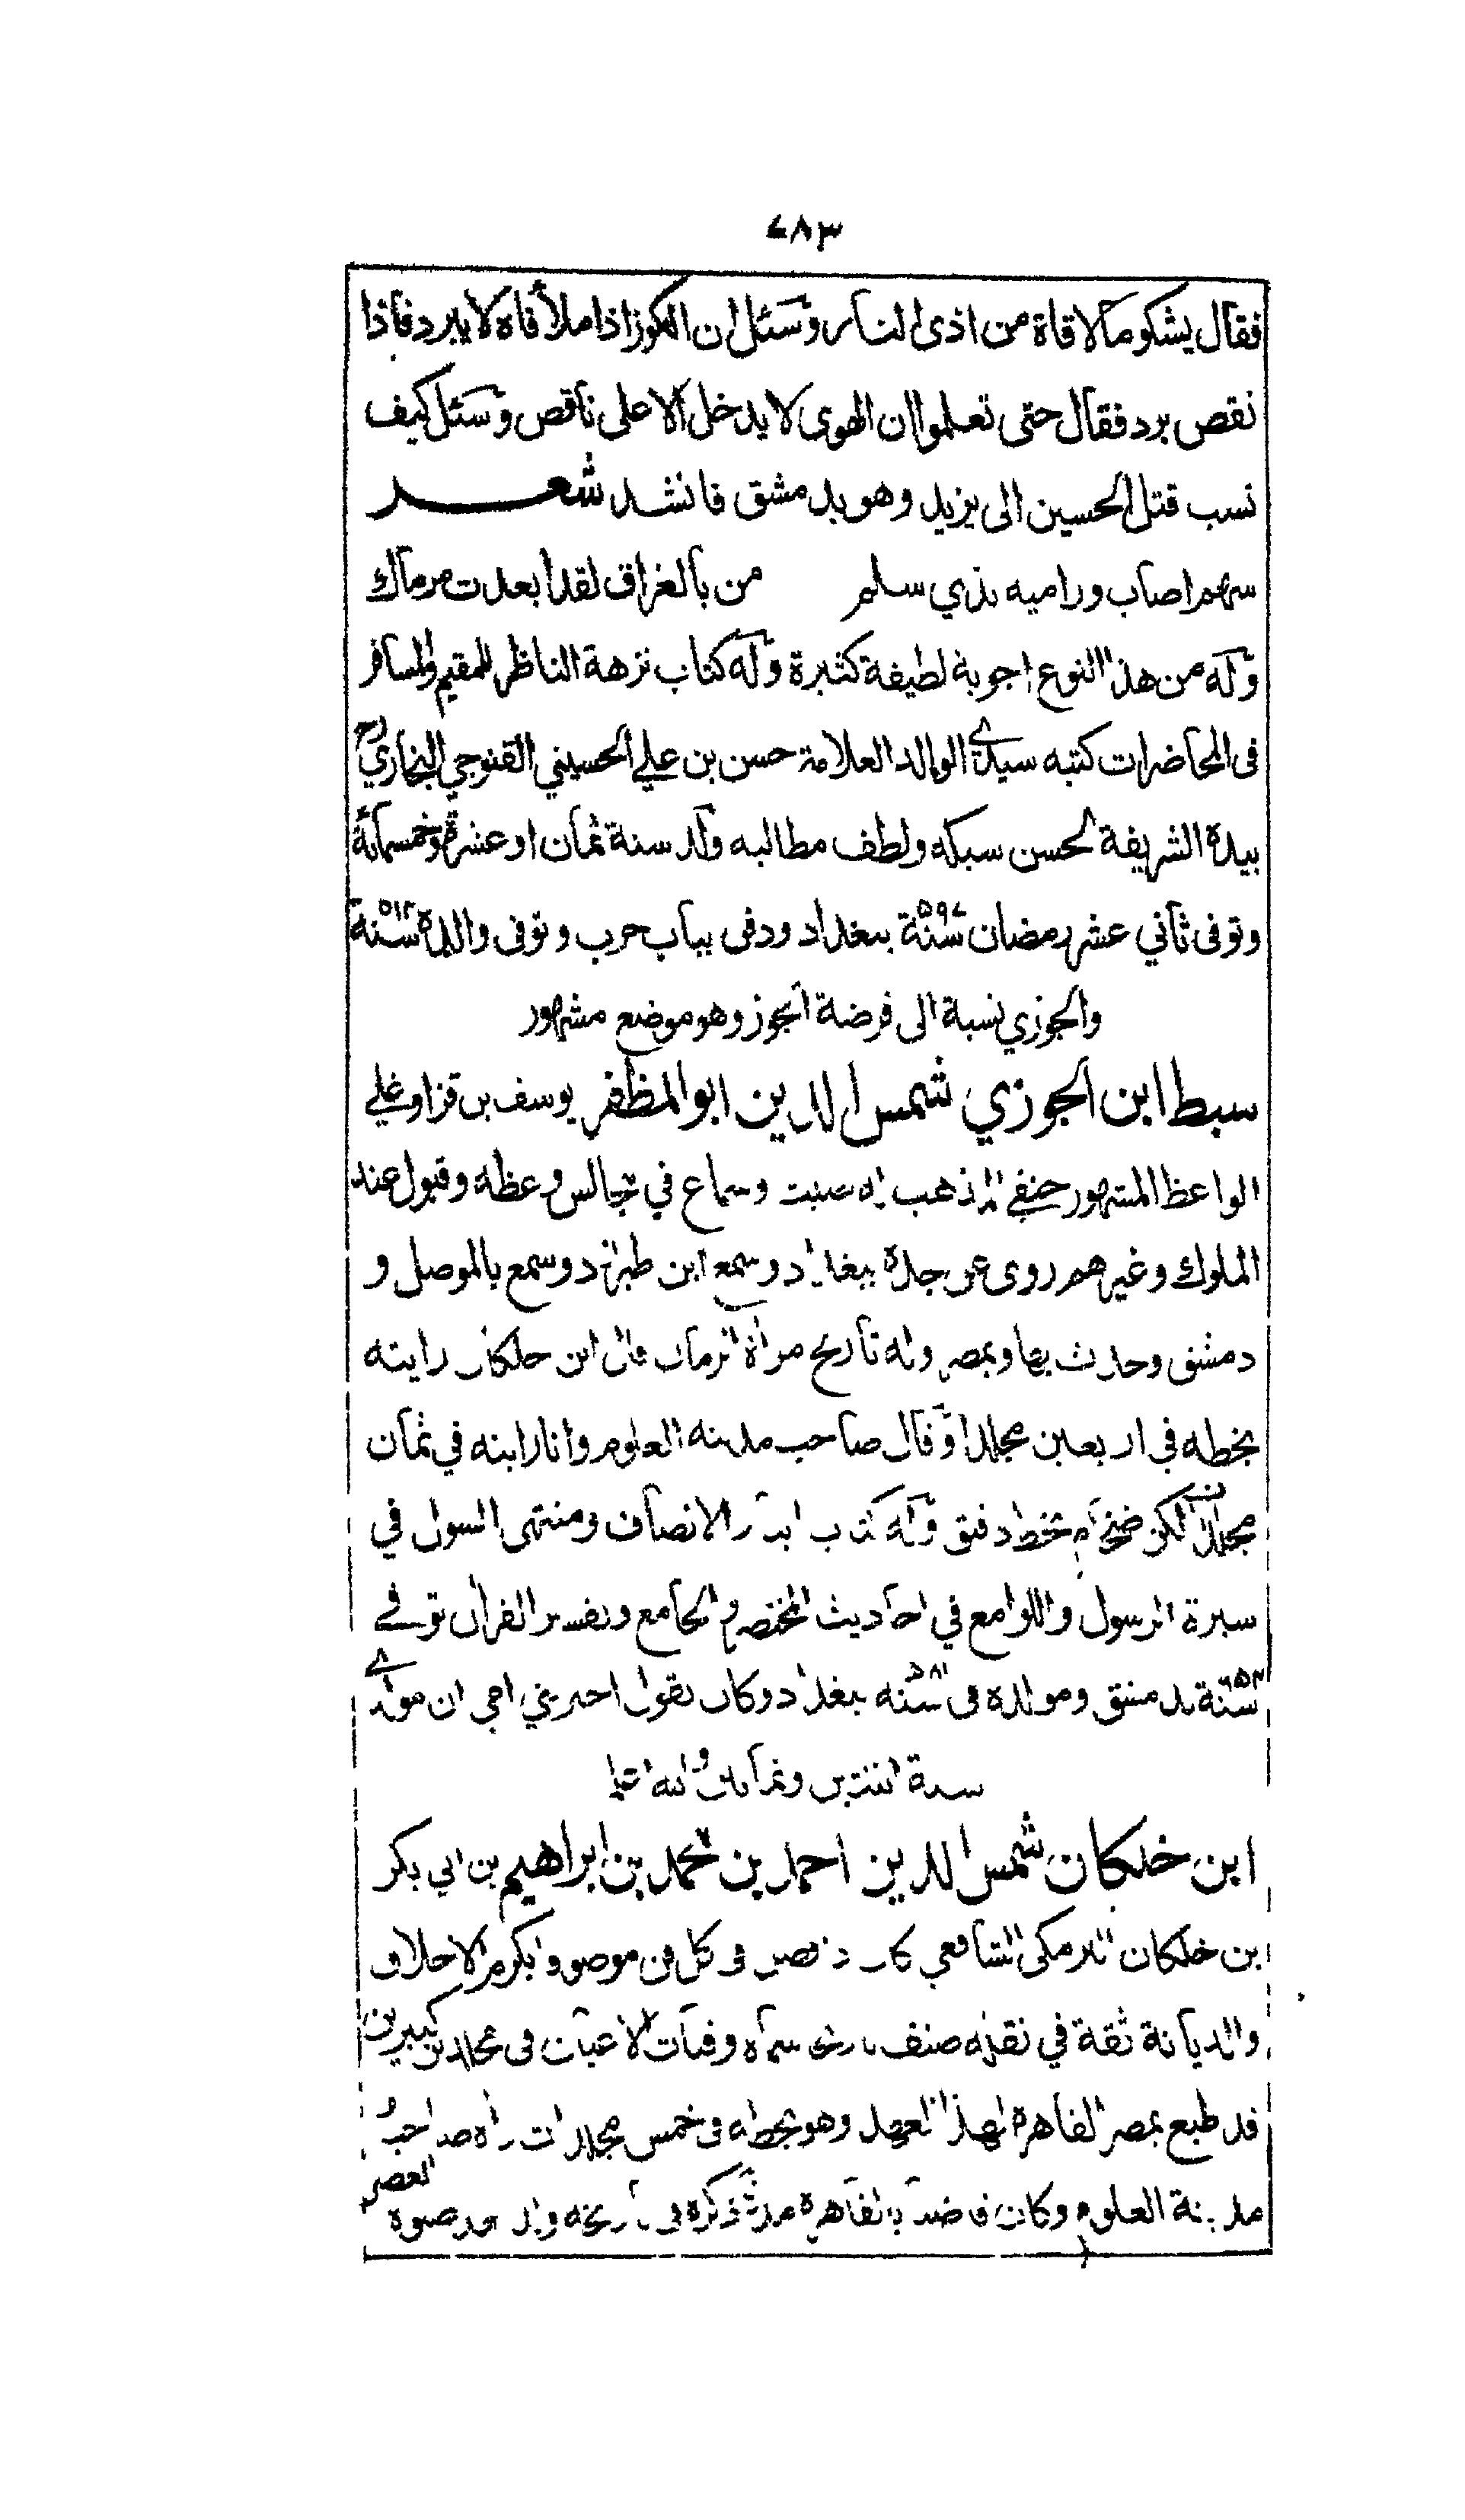 ٧٨٣
فقال يشكو مالاقاة من اذى النار وسئل ان الكوز اذا ملأ فاه لا يبرد فاذا
نقص برد فقال حتى تعلموا ان الهوى لا يدخل الا على ناقص وسئل كيف
نسب قتل الحسين الى يزيد وهو بدمشق فانشد شعر
سهم اصاب وراميه بذي سلم من بالعراق لقد ابعدت مرماك
وله من هذا النوع اجوبة لطيفة كثيرة وله كتاب نزهة الناظر للمقيم والمسافر
فى المحاضرات كتبه سيدي الوالد العلامة حسن بن علي الحسيني القنوجي البخاري رح
بيده الشريفة لحسن سبكه ولطف مطالبه ولد سنة ثمان او عشرة وخمسمائة
وتوفى ثاني عشر رمضان سنة ٥٩٧ ببغداد ودفن بباب حرب وتوفى والده سنة ٥١٤
والجوزي نسبة الى فرضة الجوز وهو موضع مشهور
سبط ابن الجوزي شمس الدين ابو المظفر يوسف بن قزاوغلي
الواعظ المشهور حنفي المذهب له صيت وسماع في مجالس وعظه وقبول عند
الملوك وغيرهم روى عن جده ببغداد وسمع ابن طبرزد وسمع بالموصل و
دمشق وحدث بها وبمصر وله تاريخ مرأة الزمان قال ابن خلكان رايته
بخطه في اربعين مجلدا وقال صاحب مدينة العلوم وانا رايته في ثمان
مجلدات لكن ضخام بخط دقيق وله كتاب ايثار الانصاف ومنتهى السول في
سيرة الرسول واللوامع في احاديث المختصر والجامع وتفسير القران توفي
سنة ٦٥٤ بدمشق ومولده فى سنة ٥٨١ ببغداد وكان يقول اخبرتني امي ان مولدي
سنة اثنتين وثمانين والله اعلم
ابن خلكان شمس الدين احمد بن محمد بن ابراهيم بن ابي بكر
بن خلكان البرمكى الشافعي كان ذا فضل فى كل فن موصوفا بكرم الاخلاق
والديانة ثقة في نقله صنف تاريخا سماه وفيات الاعيان فى مجلدين كبيرين
قد طبع بمصر القاهرة لهذا العهد وهو بخطه فى خمس مجلدات راه صاحب
مدينة العلوم وكان قاضيا بالقاهرة ذكره فى تاريخه